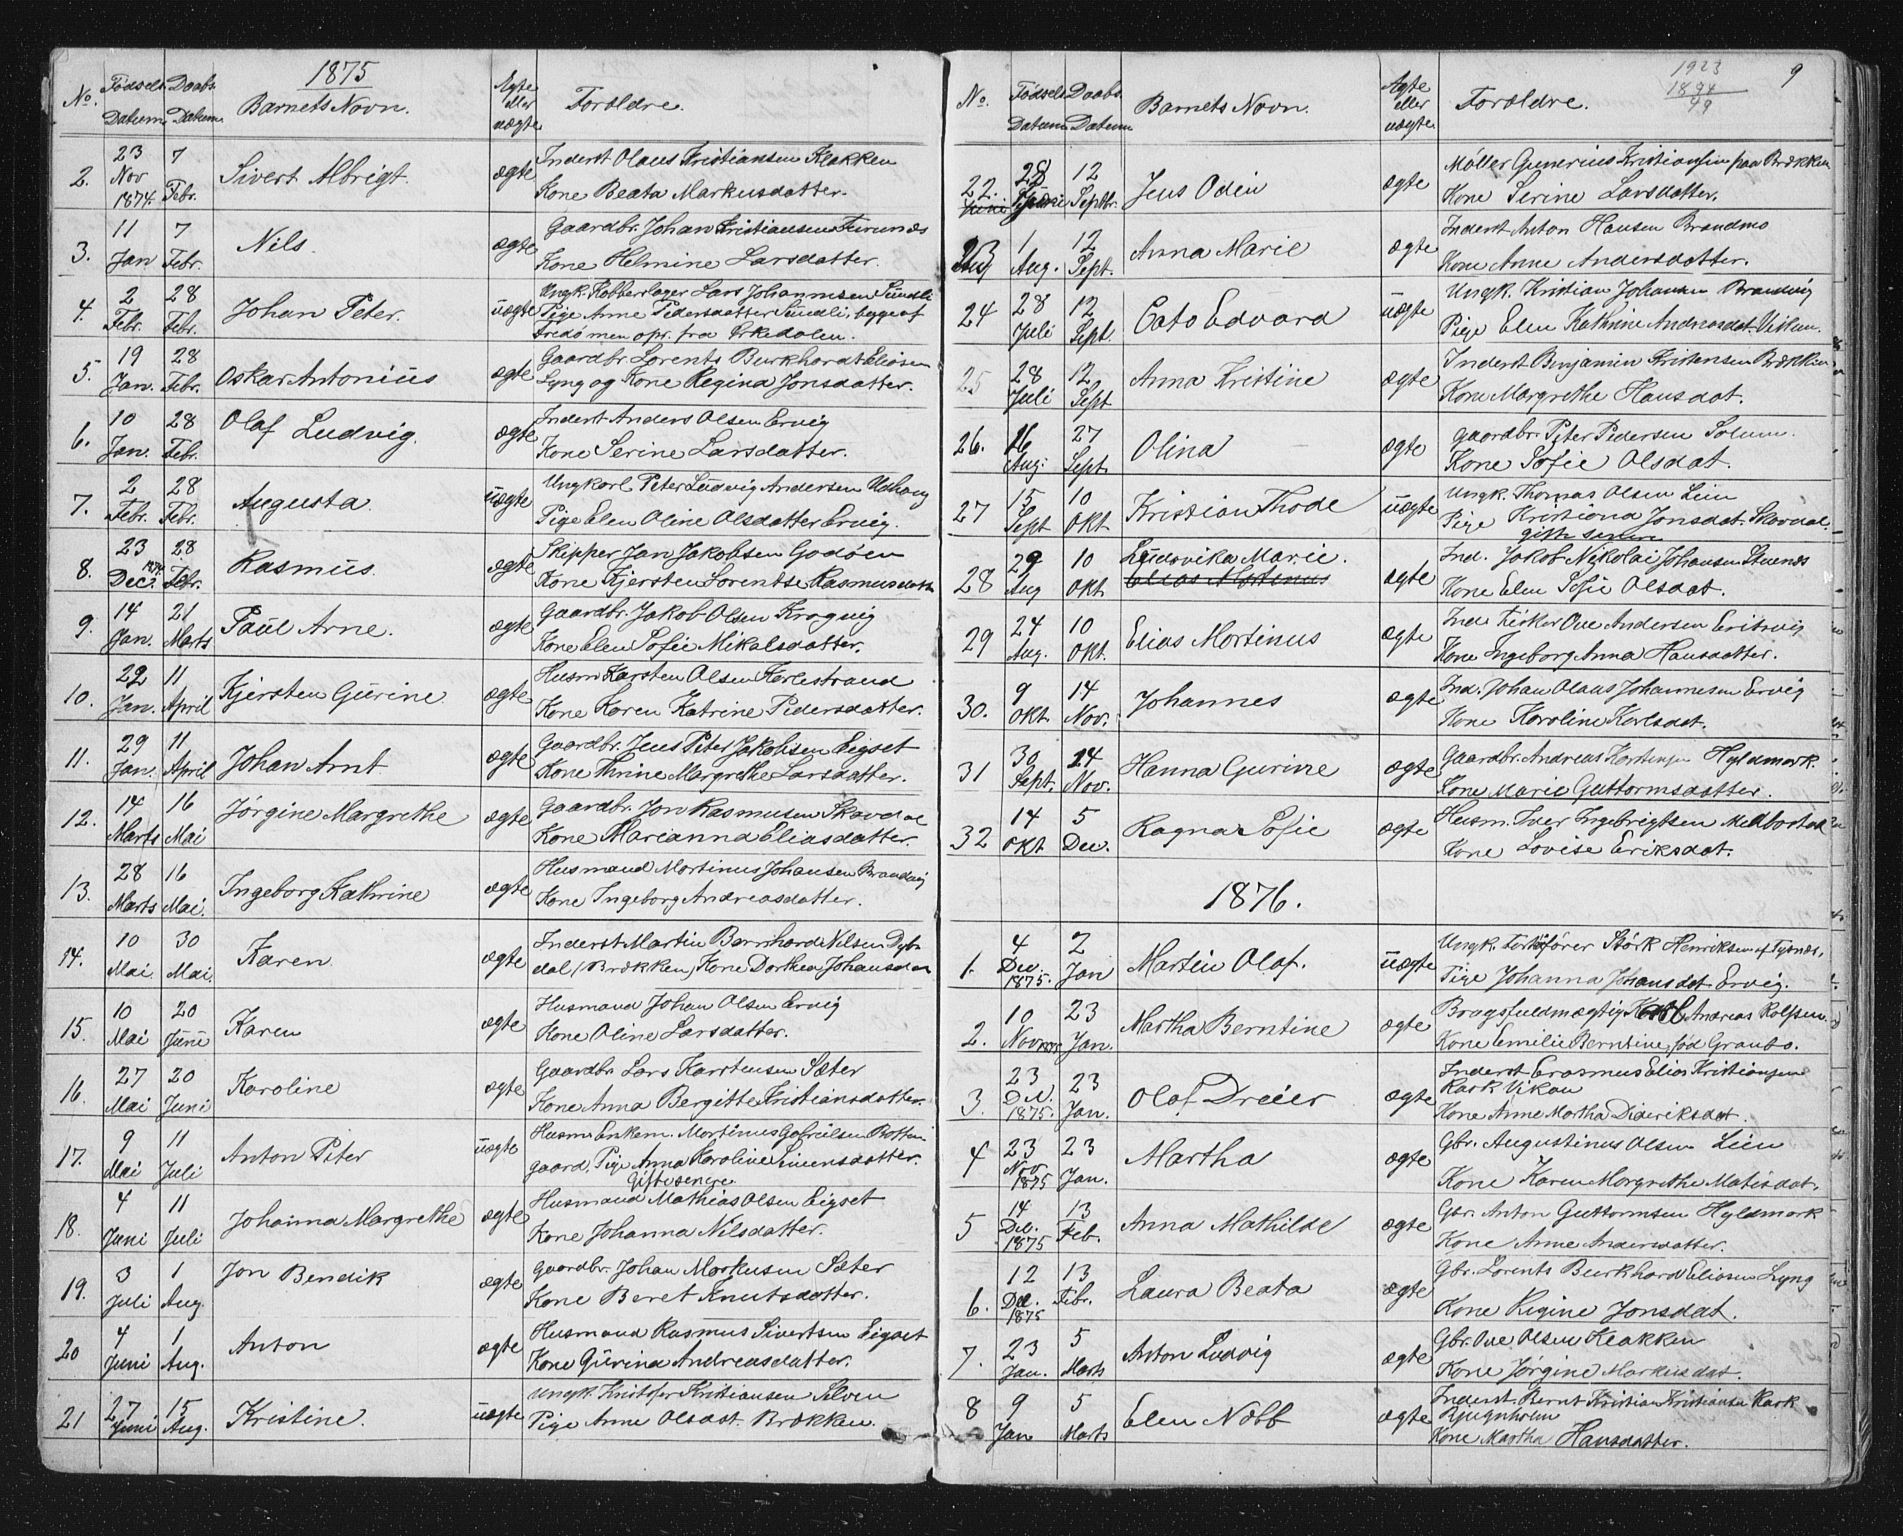 1875
No. Fødsels Datum Daabs Datum Barnets Navn. Ægte eller uægte Forældre.
2. 23 Nov 1874. 7 Febr. Sivert Albrigt. ægte Inderst Olaus Kristiansen Klakken
Kone Beata Markusdatter.
3. 11 Jan 7 Febr. Nils. ægte Gaardbr. Johan Kristiansen Furunes
Kone Helmine Larsdatter.
4. 2 Febr. 28 Febr. Johan Peter. uægte Ungk. Kobberslager Lars Johannesen Sundli
Pige Arne Pedersdatter Sundli, begge af
Fredø men opr. fra Ørkedalen.
5. 19 Jan. 28 Febr. Oskar Antonius ægte Gaardbr. Lorents Burkhardt Eliasen
Lyng og Kone Regina Jonsdatter.
6. 10 Jan. 28 Febr. Olaf Ludvig. ægte Inderst Anders Olsen Ervig
Kone Serine Larsdatter.
7. 2 Febr. 28 Febr. Augusta uægte Ungkarl Peter Ludvig Andersen Udhaug
Pige Elen Oline Olsdatter Ervig.
8. 23 Decr. 1874 28 Febr. Rasmus. ægte Skipper Jan Jakobsen Godøen
Kone Kjersten Lorentse Rasmusdatter
9. 14 Jan. 21 Marts Paul Arne. ægte Gaardbr. Jakob Olsen Kragvig
Kone Elen Sofie Mikalsdatter.
10. 22 Jan. 11 April Kjersten Gurine ægte Husm Karsten Olsen Karlestrand
Kone Karen Katrine Pedersdatter.
11. 29 Jan. 11 April Johan Arnt ægte Gaardbr. Jens Peter Jakobsen Eigset
Kone Thrine Margrethe Larsdatter.
12. 14 Marts 16 Mai Jørgine Margrethe ægte Gaardbr. Jon Rasmusen Skavdal
Kone Marianna Eliasdatter.
13. 28 Marts 16 Mai. Ingeborg Kathrine ægte Husmand Martinus Johansen Brandvig
Kone Ingeborg Andreasdatter.
14. 10 Mai 30 Mai. Karen ægte Inderst Martin Bernhard Nilsen Dybdal (Brækken) Kone Dorthea Johansdat
15. 10 Mai 20 Juni Karen ægte Husmand Johan Olsen Ervig
Kone Oline Larsdatter.
16. 27 Mai 20 Juni Karoline ægte Gaardbr. Lars Karstensen Sæter
Kone Anna Bergitte Kristiansdatter.
17. 9 Mai 11 Juli Anton Peter uægte Husm Enkem. Martinus Gabrielsen Botten
gaard, Pige Anna Karoline Simensdatter.
Gift senere
18. 4 Juni 11 Juli Johanna Margrethe ægte Husmand Mathias Olsen Eigset
Kone Johanna Nilsdatter.
19. 3 Juli 1 Aug. Jon Bendik ægte Gaardbr. Johan Markusen Sæter
Kone Beret Knutsdatter.
20 4 Juni 1 Aug. Anton ægte Husmand Rasmus Sivertsen Eigset
Kone Gurina Andreasdatter.
21 27 Juni 15 Aug. Kristine. uægte Ungk. Kristofer Kristiansen Selven
Pige Anne Olsdat. Brækken.
1923
1894
49
9
No. Fødsels Datum Daabs. Datum Barnets Navn. Ægte eller uægte Forældre.
22. 28 12 Septbr. Jens Odin ægte Møller Gunerius Kristiansen paa Brækken
Kone Serine Larsdatter.
23 1 Aug. 12 Sept. Anna Marie ægte Inderst Anton Hansen Brandmo
Kone Anne Andersdatter.
24 28 Juli 12 Sept. Cato Edvard uægte Ungk. Kristian Johansen Brandvig
Pige Elen Kathrine Andreasdat. Vikan.
25 28 Juli 12 Sept Anna Kristine ægte Inderst Benjamin Kristensen Brækken
Kone Margrethe Hansdat.
26. 16 Aug. 27 Sept. Olina ægte Gaardbr. Peter Pedersen Solum.
Kone Sofie Olsdat.
27 15 Sept 10 Okt. Kristian Thode uægte Ungk. Thomas Olsen Lien
Pige Kristiana Jonsdat. Skavdal.
gift senere
28 29 Aug 10 Okt. Ludovika Marie. Elias Martinus ægte Ind. Jakob Nikolai Johansen Stuenes
Kone Elen Sofie Olsdat.
29 24 Aug. 10 Okt. Elias Martinus ægte Ind. Fisker Ove Andersen Eritsvig
Kone Ingeborg Anna Hansdatter.
30. 9 Okt. 14 Nov. Johannes ægte Ind. Johan Olaus Johannesen Ervig
Kone Karoline Karlsdat.
31 30 Sept. 14 Nov. Hanna Gurine ægte Gaardbr. Andreas Karstensen Hyldmark.
Kone Marie Guttormsdatter.
32 14 Okt 5 Dec. Ragna Sofie ægte Husm. Iver Ingebrigtsen Melbostad
Kone Lovise Eriksdat.
1876.
1. 4 Dec 1875. 2 Jan Martin Olaf. uægte Ungk. Størk Henriksen af Tysnæs.
Pige Johanna Johansdat Ervig.
2. 10 Nov 1875 23 Jan. Martha Berntine ægte Brugsfuldmægtig Karl Andreas Rolfsen.
Kone Emilie Berntine, fød Granbo.
3. 23 Dec. 1875. 23 Jan. Olaf Dreier ægte Inderst Erasmus Elias Kristiansen
Rark Vikan
Kone Anne Martha Dideriksdat.
4 23 Nov 1875 23 Jan. Martha ægte Gbr. Augustinus Olsen Lien
Kone Karen Margrethe Matisdat.
5 14 Dec. 1875 13 Feb. Anna Mathilde ægte Gbr. Anton Guttormsen Hyldmark
Kone Anne Andersdatter.
6. 12 Dec. 1875 13 Febr. Laura Beata ægte Gbr. Lorents Burkhard Eliasen Lyng
Kone Regine Jonsdat.
7. 23 Jan. 5 Marts Anton Ludvig ægte Gbr. Ove Olsen Klakken
Kone Jørgine Markusdat.
8 9 Jan 5 Marts Elen Nobb ægte Inderst Bernt Kristian Kristiansen Rark
Kone Martha Hansdatter.